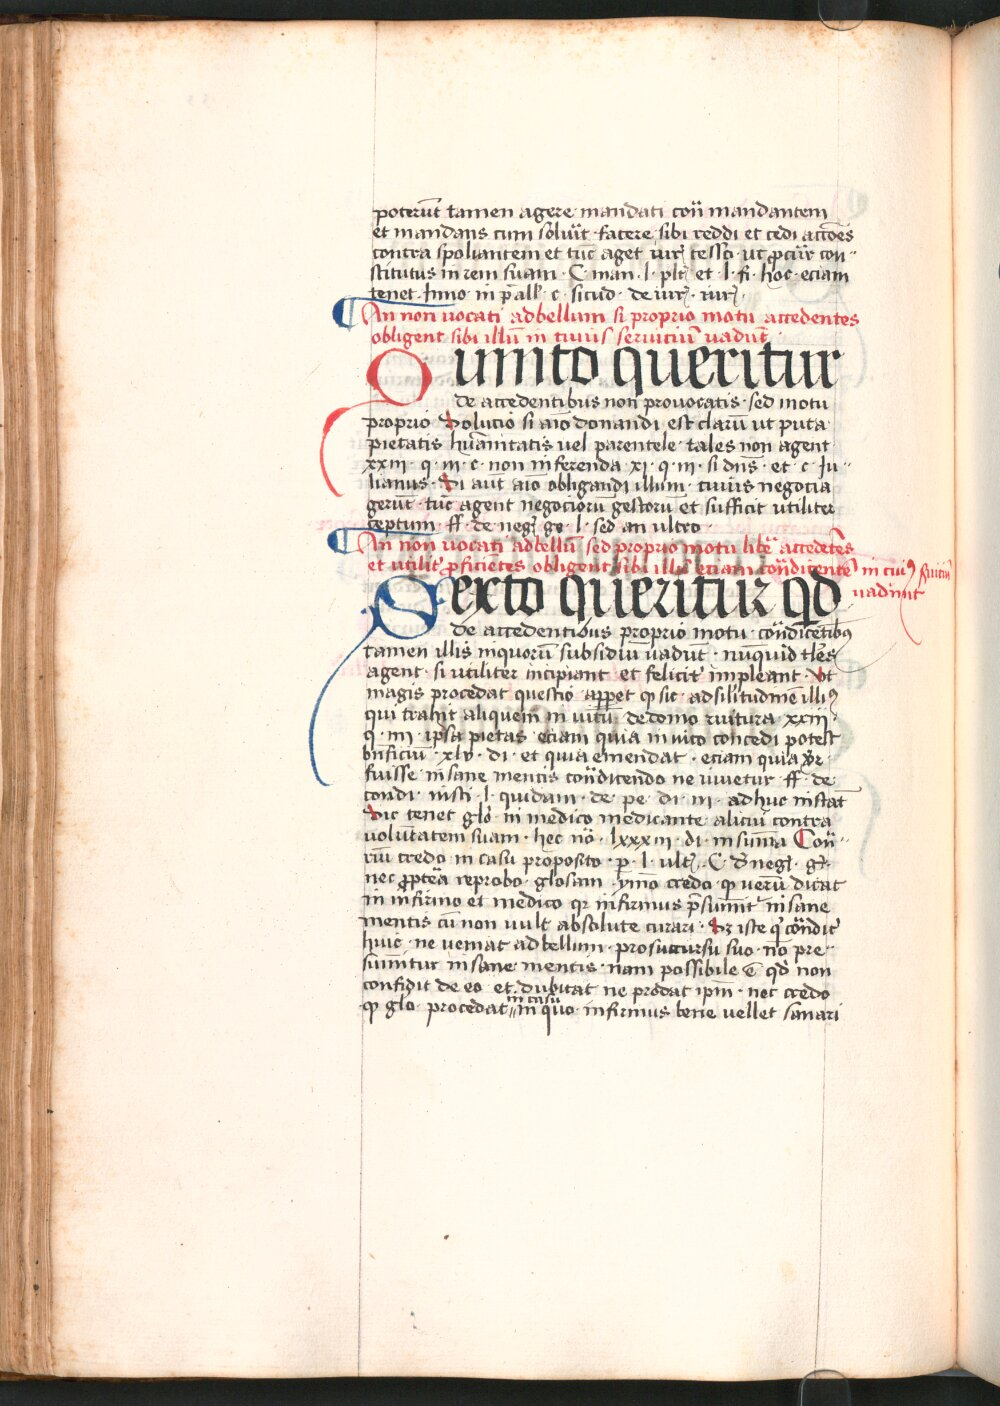 poterūt tamen agere mandati cōn mandantem
et mandans cum soluūt facere sibi reddi et cedi accōes
contra spoliantem et tūc aget iur cesso ut pcur con
stitutus in rem suam · C · man · l · plr et · l · fi · hoc eciam
tenet Inno in p all c · sicud · de iur iur
An non vocati ad bellum si proprio motu accedentes
obligent sibi illū in cuius seruiciū vadūt
Quinto queritur
de accedentibus non prouocatis · sed motu
proprio Solucio si aīo donandi est clarū ut puta
pietatis hūanitatis uel parentele tales non agent
xxiii · q · iii · c · non inferenda xi · q · iii · si dns̄ · et · c · Ju
lianus · Si aut aīo obligandi illum · cuius negocia
gerūt · tūc agent negociorū gestorū et sufficit utiliter
ceptum ff · de neg ge · l · sed an ultro ·
An non vocati ad bellū sed proprio motu libē accedētes
et utilit pficiētes obligent sibi illū eciam cōndicentē in cui9 suiciū
vadunt
Sexto queritur qd
de accedentibus proprio motu · cōndicētibus
tamen illis in quorū subsidiū vadūt · nūquid tles
agent · si utiliter incipiant et felicit impleant · Ut
magis procedat questio appet q sit · ad silitudinē illi9
qui trahit aliquem in uitū de domo ruitura xxiii
q · iiii · ipsa pietas · eciam quia in uito concedi potest
bnficiū · xlv · di · et quia emendat · eciam quia
fuisse insane mentis cōndicendo ne iuuetur ff · de
condi · insti · l · quidam · de pe · di · iii · adhuc instat
Sic tenet glo in medico medicante alicui contra
voluntatem suam · hec nō · lxxxiii · di · in summa Con
riū credo in casu proposito · p · l · ult · C · d neg · g
nec ppterea reprobo glosam · ymo credo q uerū dicat
in infirmo et medico qr infirmus psumit insane
mentis cū non uult absolute curari · Sz iste q cōndic
huic · ne ueniat ad bellum · pro succursu suo · nō pre
sumitur insane mentis · nam possibile ē qd non
confidit de eo et dubitat ne prodat ipm · nec credo
q glo procedat in casu in quo infirmus bene uellet sanari